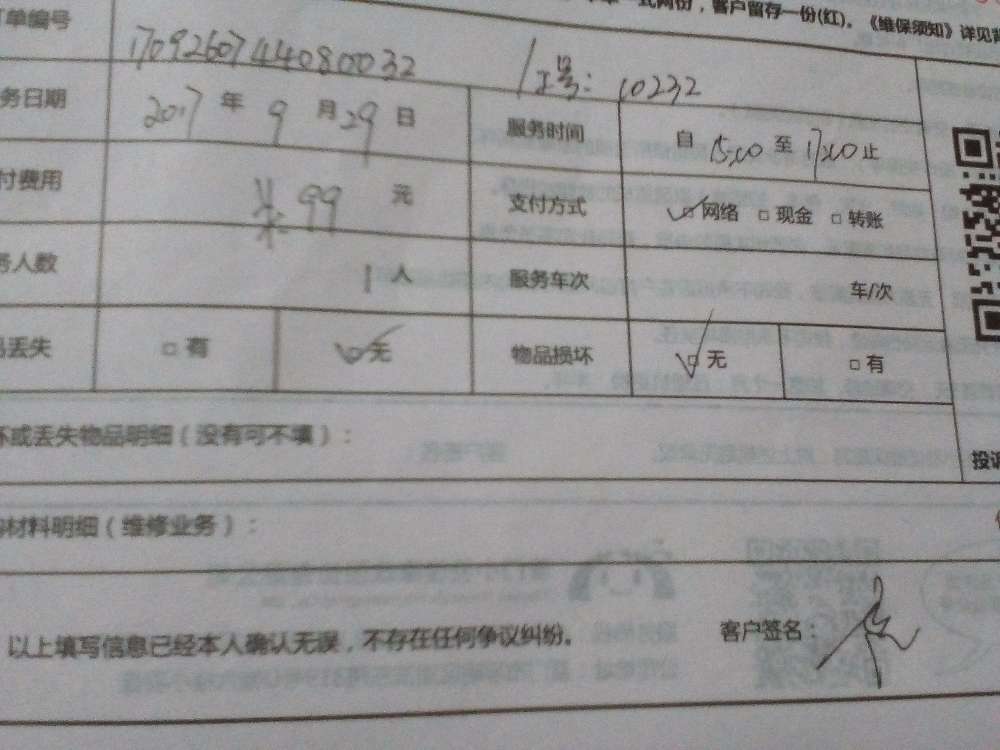 一式两份，客户留存一份(红)。《维保须知》详见背
订单编号 170926074408 0032 工号：10232
务日期 2017 年 9 月 29 日 服务时间 自 15:00 至 17:00 止
付费用 ¥99 元 支付方式 ☑网络 □现金 □转账
务人数 1 人 服务车次 车/次
品丢失 □有 ☑无 物品损坏 ☑无 □有
坏或丢失物品明细（没有可不填）：
投诉
材料明细（维修业务）：
以上填写信息已经本人确认无误，不存在任何争议纠纷。 客户签名：